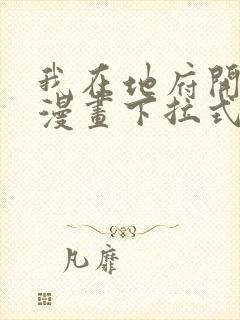 我在地府開
漫畫下拉式
凡靡